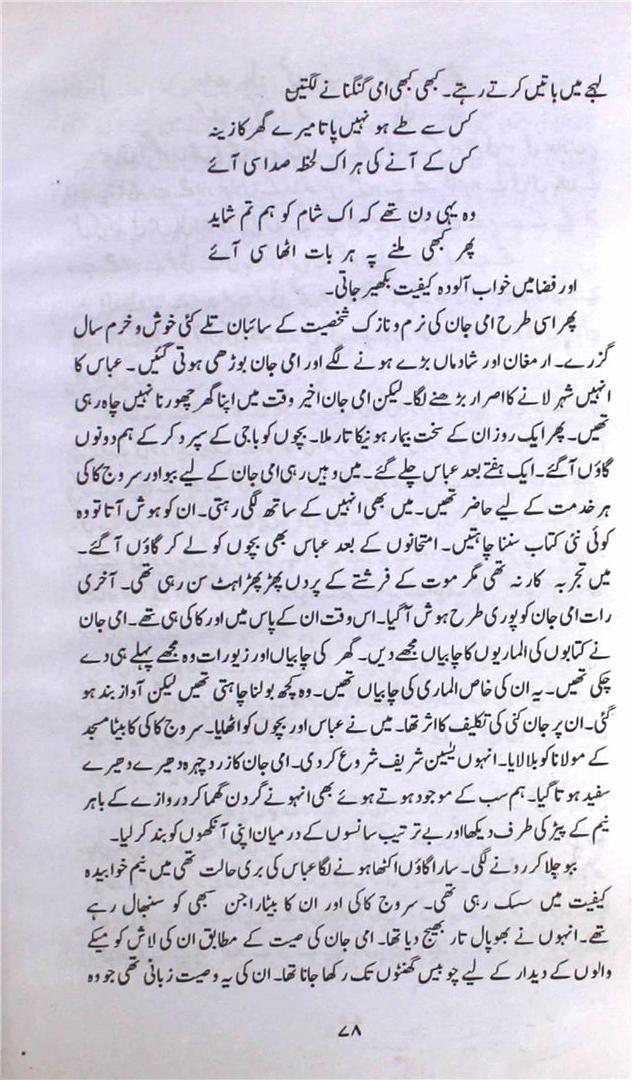 لہجے میں باتیں کرتے رہتے۔ کبھی کبھی امی گنگنانے لگتیں
کس سے طے ہو نہیں پاتا میرے گھر کا زینہ
کس کے آنے کی ہر اک لحظہ صدا سی آئے
وہ یہی دن تھے کہ اک شام کو ہم تم شاید
پھر کبھی ملنے پہ ہر بات اٹھا سی آئے
اور فضا میں خواب آلودہ کیفیت بکھیر جاتی۔
پھر اسی طرح امی جان کی نرم و نازک شخصیت کے سائبان تلے کئی خوش و خرم سال
گزرے۔ ارمغان اور شادماں بڑے ہونے لگے اور امی جان بوڑھی ہوتی گئیں۔ عباس کا
انہیں شہر لانے کا اصرار بڑھنے لگا۔ لیکن امی جان اخیر وقت میں اپنا گھر چھورنا نہیں چاہ رہی
تھیں۔ پھر ایک روز ان کے سخت بیمار ہونیکا تار ملا۔ بچوں کو باجی کے سپرد کر کے ہم دونوں
گاؤں آگئے۔ ایک ہفتے بعد عباس چلے گئے۔ میں وہیں رہی امی جان کے لیے ببو اور سروج کاکی
ہر خدمت کے لیے حاضر تھیں۔ میں بھی انہیں کے ساتھ لگی رہتی۔ ان کو ہوش آتا تو وہ
کوئی نئی کتاب سننا چاہتیں۔ امتحانوں کے بعد عباس بھی بچوں کو لے کر گاؤں آگئے۔
میں تجربہ کار نہ تھی مگر موت کے فرشتے کے پروں پھڑپھڑاہٹ سن رہی تھی۔ آخری
رات امی جان کو پوری طرح ہوش آگیا۔ اس وقت ان کے پاس میں اور کاکی ہی تھے۔ امی جان
نے کتابوں کی الماریوں کا چابیاں مجھے دیں۔ گھر کی چابیاں اور زیورات وہ مجھے پہلے ہی دے
چکی تھیں۔ یہ ان کی خاص الماری کی چابیاں تھیں۔ وہ کچھ بولنا چاہتی تھیں لیکن آواز بند ہو
گئی۔ ان پر جان کنی کی تکلیف کا اثر تھا۔ میں نے عباس اور بچوں کو اٹھایا۔ سروج کاکی کا بیٹا مسجد
کے مولانا کو بلا لایا۔ انہوں یٰسین شریف شروع کر دی۔ امی جان کا زرد چہرہ دھیرے دھیرے
سفید ہوتا گیا۔ ہم سب کے موجود ہوتے ہوئے بھی انہوں نے گردن گھما کر دروازے کے باہر
نیم کے پیڑ کی طرف دیکھا اور بے ترتیب سانسوں کے درمیان اپنی آنکھوں کو بند کر لیا۔
ببو چلا کر رونے لگی۔ سارا گاؤں اکٹھا ہونے لگا عباس کی بری حالت تھی میں نیم خوابیدہ
کیفیت میں سسک رہی تھی۔ سروج کاکی اور ان کا بیٹا راجن سبھی کو سنبھال رہے
تھے۔ انہوں نے بھوپال تار بھیج دیا تھا۔ امی جان کی صیت کے مطابق ان کی لاش کو میکے
والوں کے دیدار کے لیے چوبیس گھنٹوں تک رکھا جانا تھا۔ ان کی یہ وصیت زبانی تھی جو وہ
۷۸